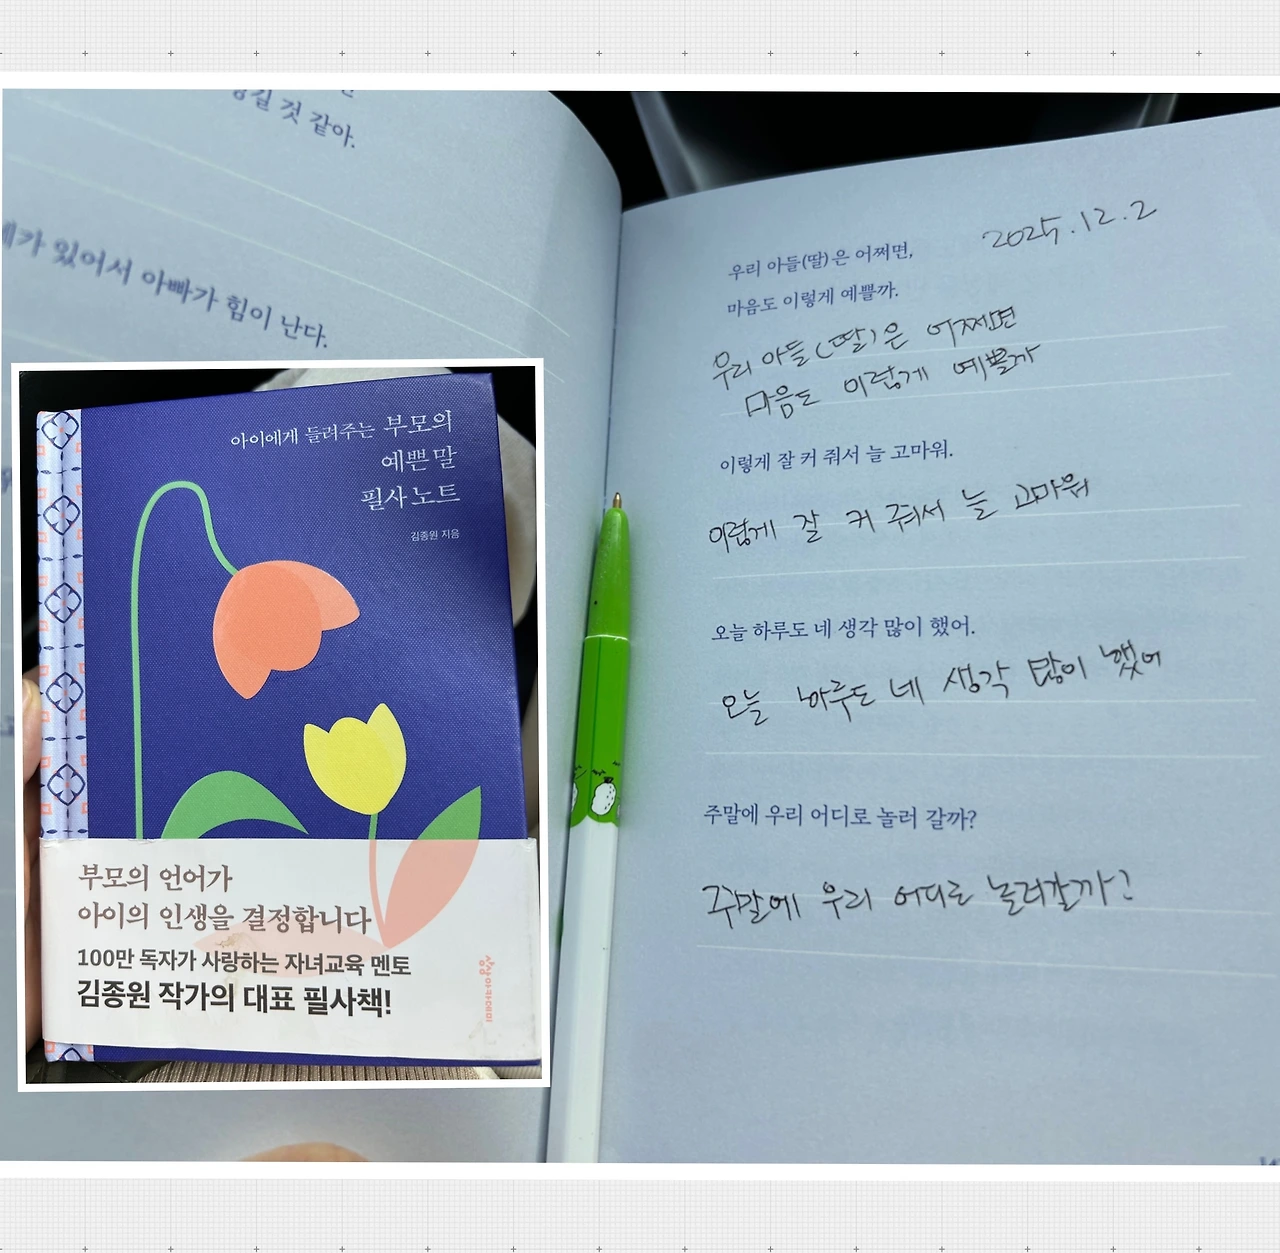 길 것 같아.
가 있어서 아빠가 힘이 난다.
2025.12.2
우리 아들(딸)은 어쩌면,
마음도 이렇게 예쁠까.
우리 아들(딸)은 어쩌면
마음도 이렇게 예쁠까
이렇게 잘 커 줘서 늘 고마워.
이렇게 잘 커 줘서 늘 고마워
오늘 하루도 네 생각 많이 했어.
오늘 하루도 네 생각 많이 했어
주말에 우리 어디로 놀러 갈까?
주말에 우리 어디로 놀러갈까?
아이에게 들려주는 부모의
예쁜 말
필사 노트
김종원 지음
부모의 언어가
아이의 인생을 결정합니다
100만 독자가 사랑하는 자녀교육 멘토
김종원 작가의 대표 필사책!
상상아카데미